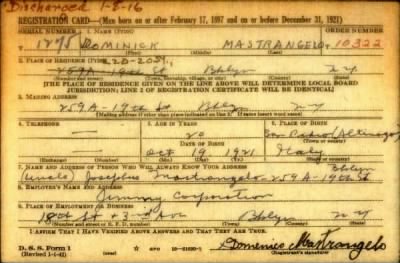 Discharged 1-8-16
REGISTRATION CARD—(Men born on or after February 17, 1897 and on or before December 31, 1921)
SERIAL NUMBER 1. NAME (Print) ORDER NUMBER
DOMINICK MASTRANGELO 10322
(First) (Middle) (Last)
2. PLACE OF RESIDENCE (Print)
259A-19th St Bklyn N.Y.
(Number and street) (Town, township, village, or city) (County) (State)
[THE PLACE OF RESIDENCE GIVEN ON THE LINE ABOVE WILL DETERMINE LOCAL BOARD
JURISDICTION; LINE 2 OF REGISTRATION CERTIFICATE WILL BE IDENTICAL]
3. MAILING ADDRESS
259A-19th St Bklyn N.Y.
(Mailing address if other than place indicated on line 2. If same insert word same)
4. TELEPHONE 5. AGE IN YEARS 6. PLACE OF BIRTH
20
DATE OF BIRTH
Oct 19 1921 Italy
(Exchange) (Number) (Mo.) (Day) (Yr.) (State or country)
7. NAME AND ADDRESS OF PERSON WHO WILL ALWAYS KNOW YOUR ADDRESS Bklyn
(Uncle) Josephus Mastrangelo 259A-19th St
8. EMPLOYER'S NAME AND ADDRESS
Corporation
9. PLACE OF EMPLOYMENT OR BUSINESS
18th St + 3rd Ave Bklyn N.Y.
(Number and street or R. F. D. number) (Town) (County) (State)
I AFFIRM THAT I HAVE VERIFIED ABOVE ANSWERS AND THAT THEY ARE TRUE.
D. S. S. Form 1 Domenico Mastrangelo
(Revised 1-1-42) (Registrant's signature)